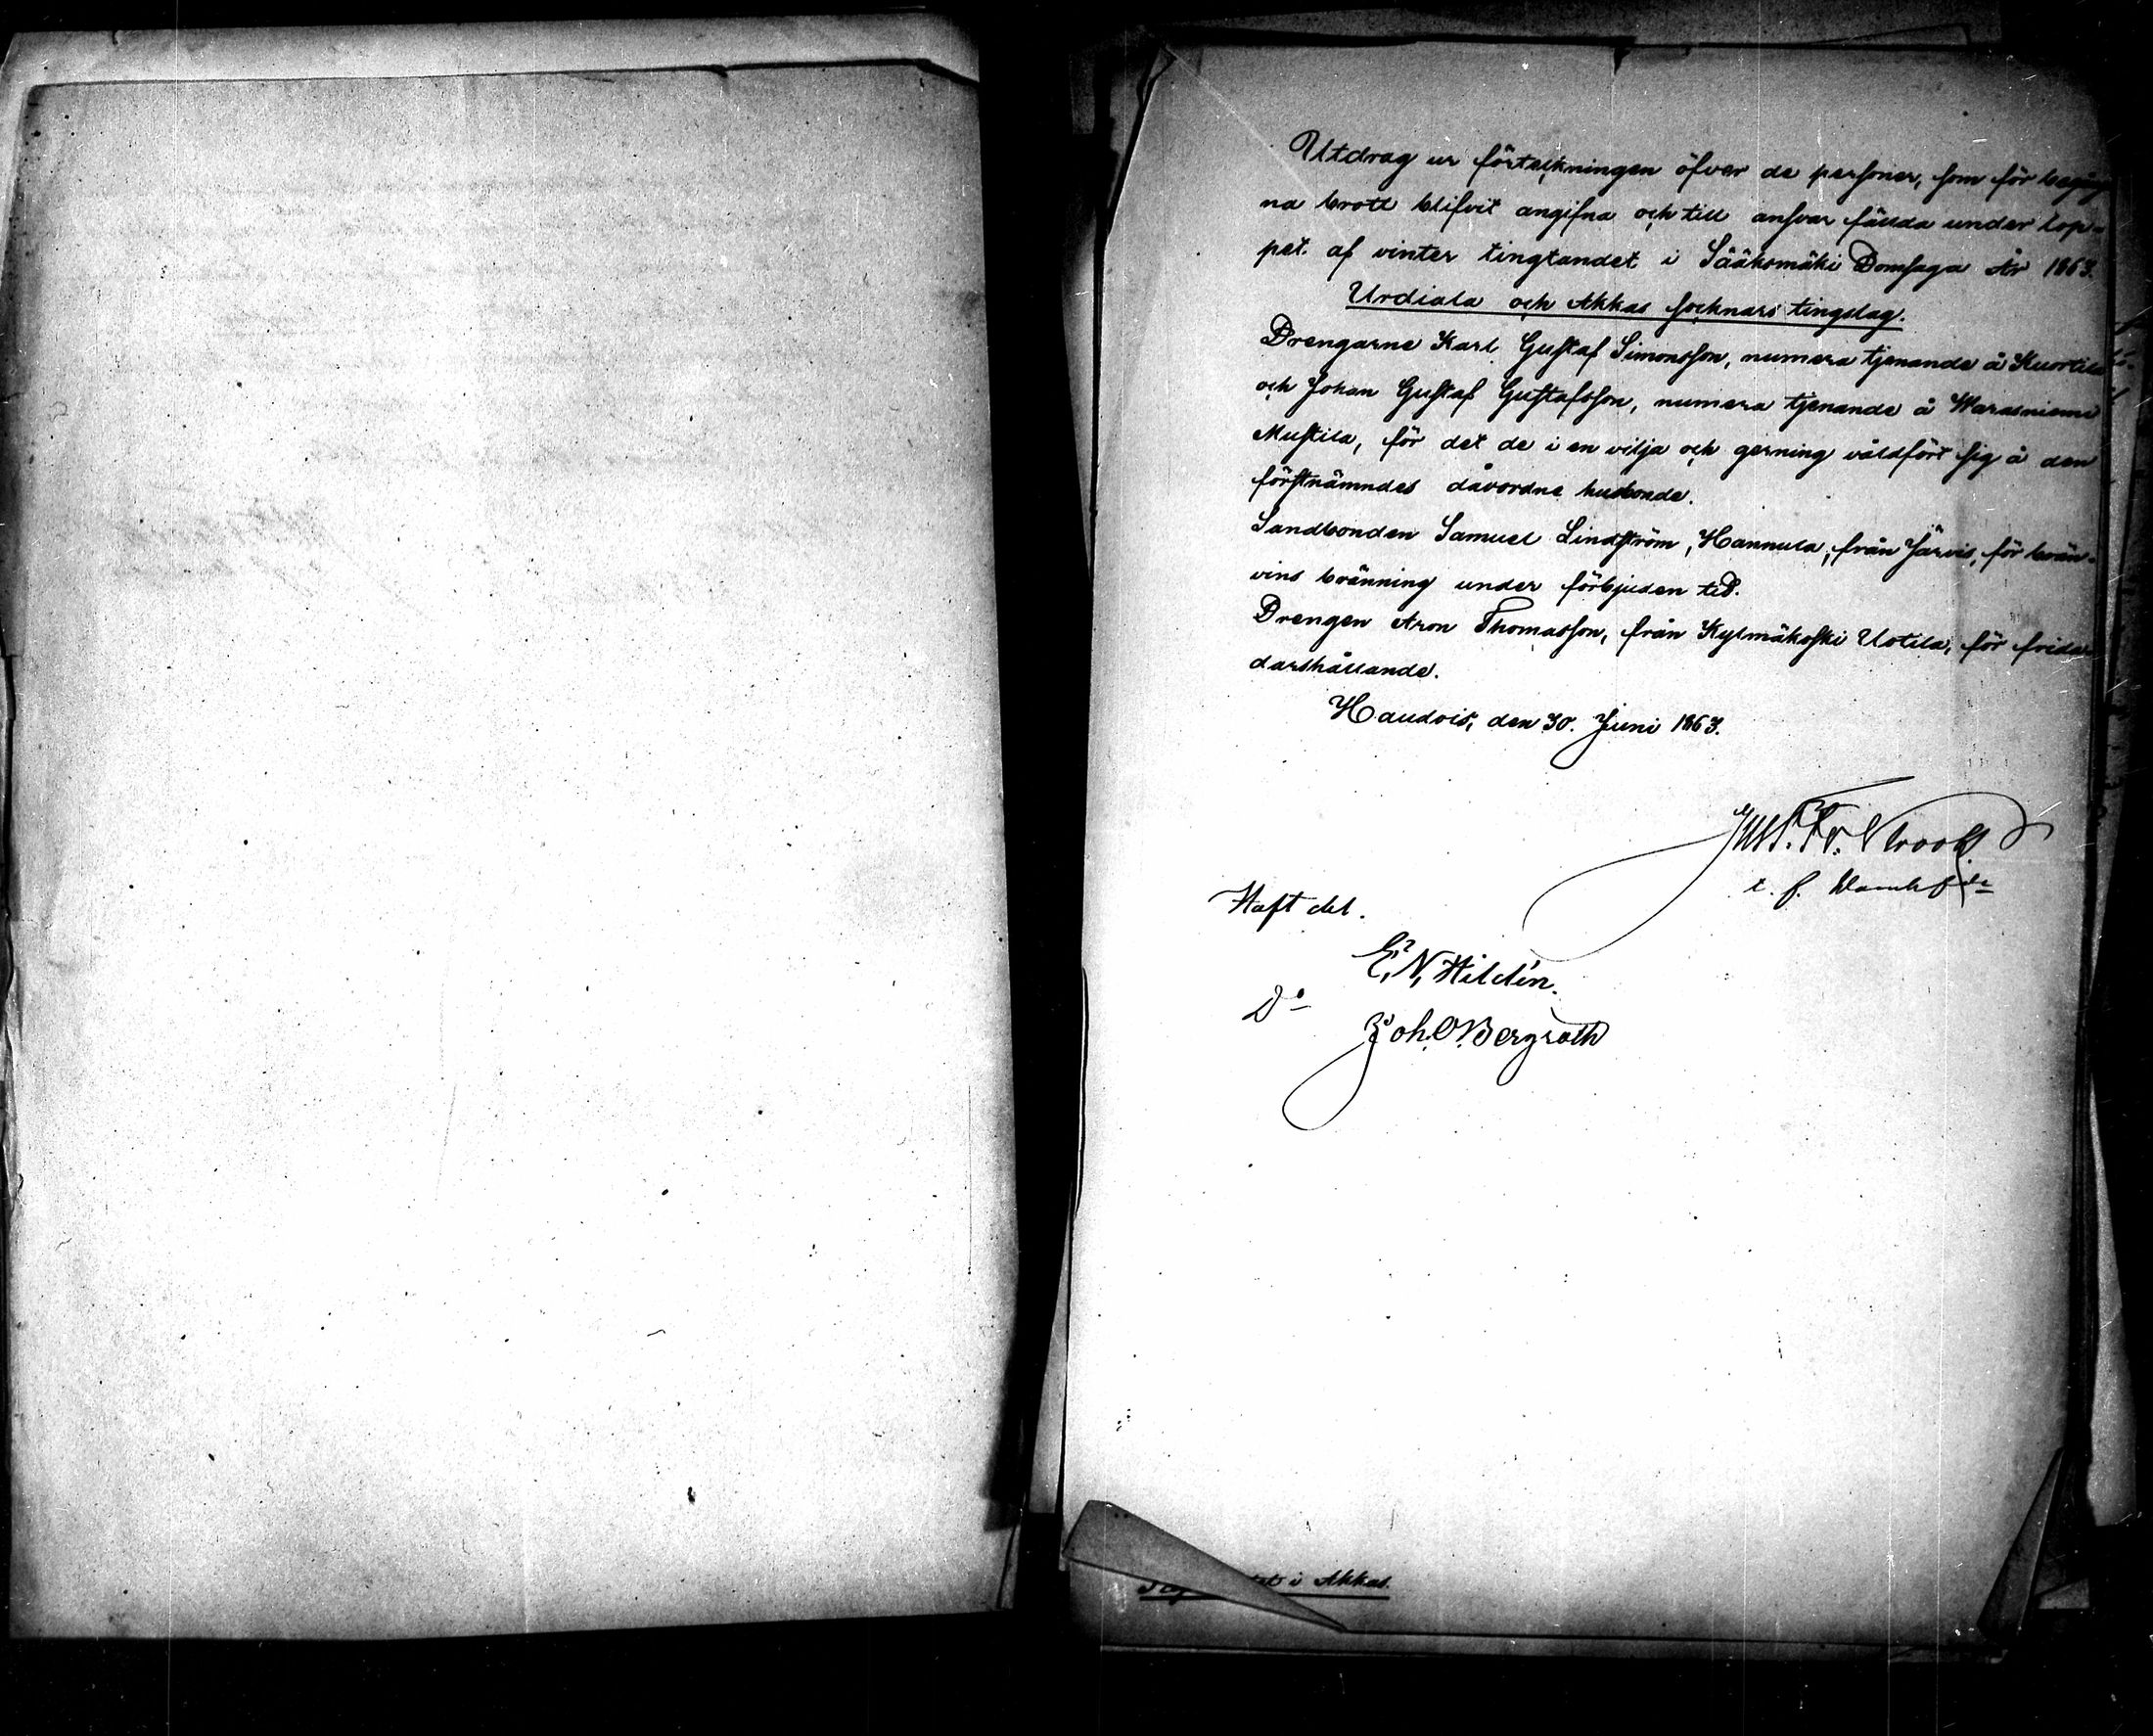 Utdrag ur förteckningen öfver de personer, som för begång-
na brott blifvit angifna och till ansvar fällda under lop-
pet af vinter tingtandet i Sääksmäki Domsaga År 1863.
Urdiala och Akkas socknars tingslag.
Drengarne Karl Gustaf Simonsson, numera tjenande å Kuortila
och Johan Gustaf Gustafsson, numera tjenande å Warasniemi
Mustila, för det de i en vilja och gerning våldfört sig å den
förstnämndes dåvordne husbonde.
Landbonden Samuel Lindström, Hannula, från Järvis, för brän-
vins bränning under förbjuden tid.
Drengen Aron Thomasson, från Kylmäkoski Uotila, för frilla
darshållande.
Haudois, den 30. Juni 1863.
Haft del.
E. N. Hildén.
Do
Joh. O. Bergroth
i Akkas.